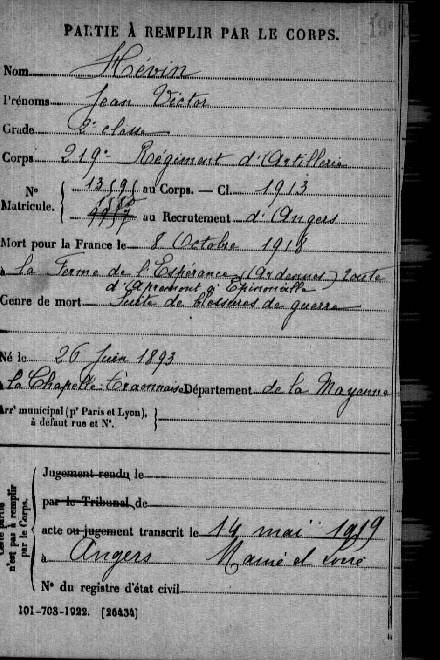 PARTIE À REMPLIR PAR LE CORPS.
Nom Hévin
Prénoms Jean Victor
Grade 2e classe
Corps 219e Régiment d'Artillerie
N° Matricule. { 13591 au Corps. — Cl. 1913
au Recrutement d'Angers
Mort pour la France le 8 Octobre 1918
à la Ferme de l'Espérance (Ardennes) route
d'Apremont à Epinonville
Genre de mort Suite de blessures de guerre
Né le 26 Juin 1893
à la Chapelle-Craonnaise Département de la Mayenne
Arrt municipal (pr Paris et Lyon),
à défaut rue et N°.
Cette partie n'est pas à remplir par le Corps.
Jugement rendu le
par le Tribunal de
acte ou jugement transcrit le 14 mai 1919
à Angers Maine et Loire
N° du registre d'état civil
101-708-1922. [26434]